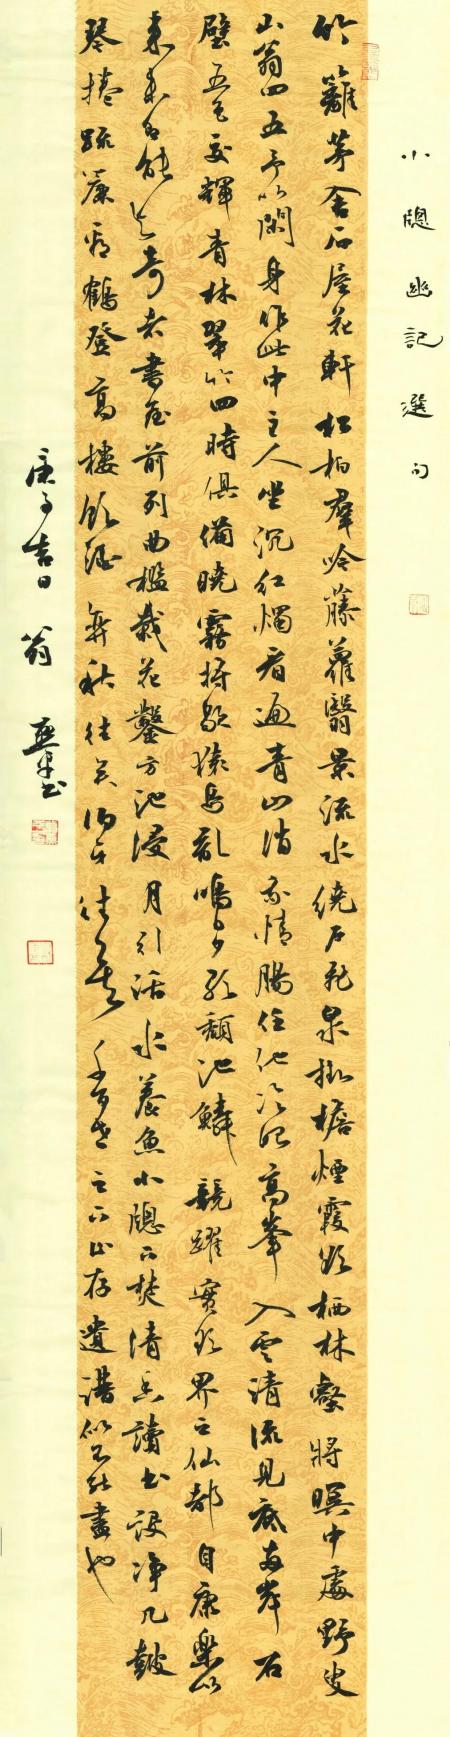 小牕幽記選句
竹籬茅舍石屋花軒松柏羣吟藤蘿翳景流水繞戶飛泉挂檐煙霞欲栖林壑將暝中處野叟
山翁四五予以閑身作此中主人坐沉紅燭看遍青山消我情腸任他冷眼高峯入雲清流見底兩岸石
壁五色交輝青林翠竹四時俱備曉霧將歇猿鳥亂鳴夕日欲頹池鱗競躍實欲界之仙都自康樂以
來未有能與奇者書屋前列曲檻栽花鑿方池浸月引活水養魚小牕下焚清香讀書設淨几鼓
琴捲疏簾看鶴登高樓飲酒弈秋往矣伯牙往矣千百世之下止存遺譜似不能盡也
庚子吉日 翁